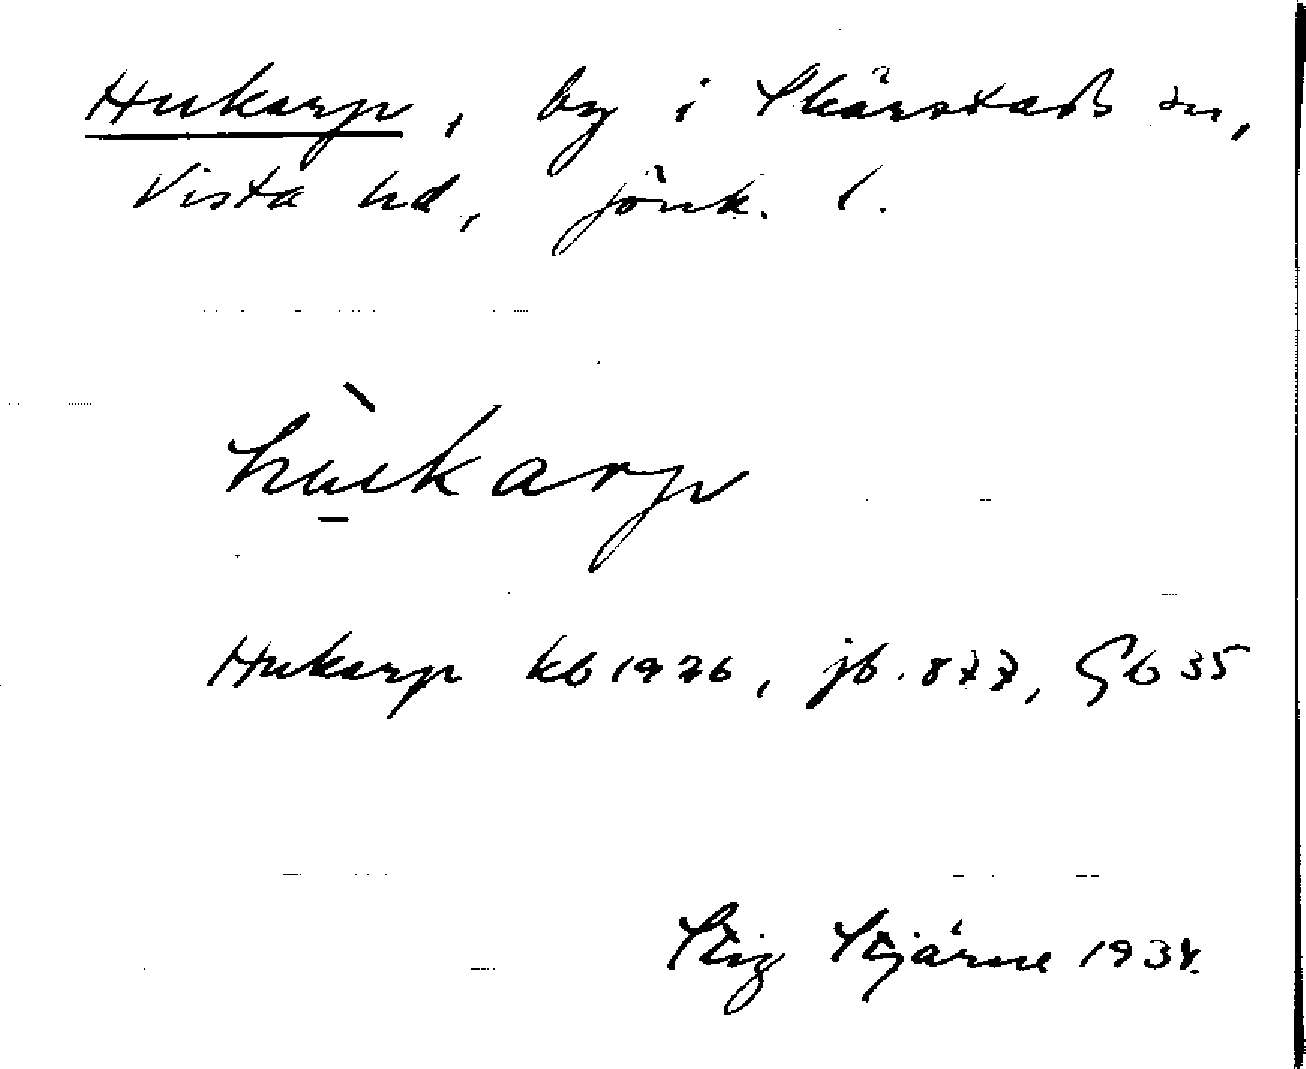 Hukarp, by i Skärstads sn,
Vista hd, Jönk. l.
hùkarp
Hukarp kb 1926, jb. 877, Gb 35
Stig Stjärne 1934.